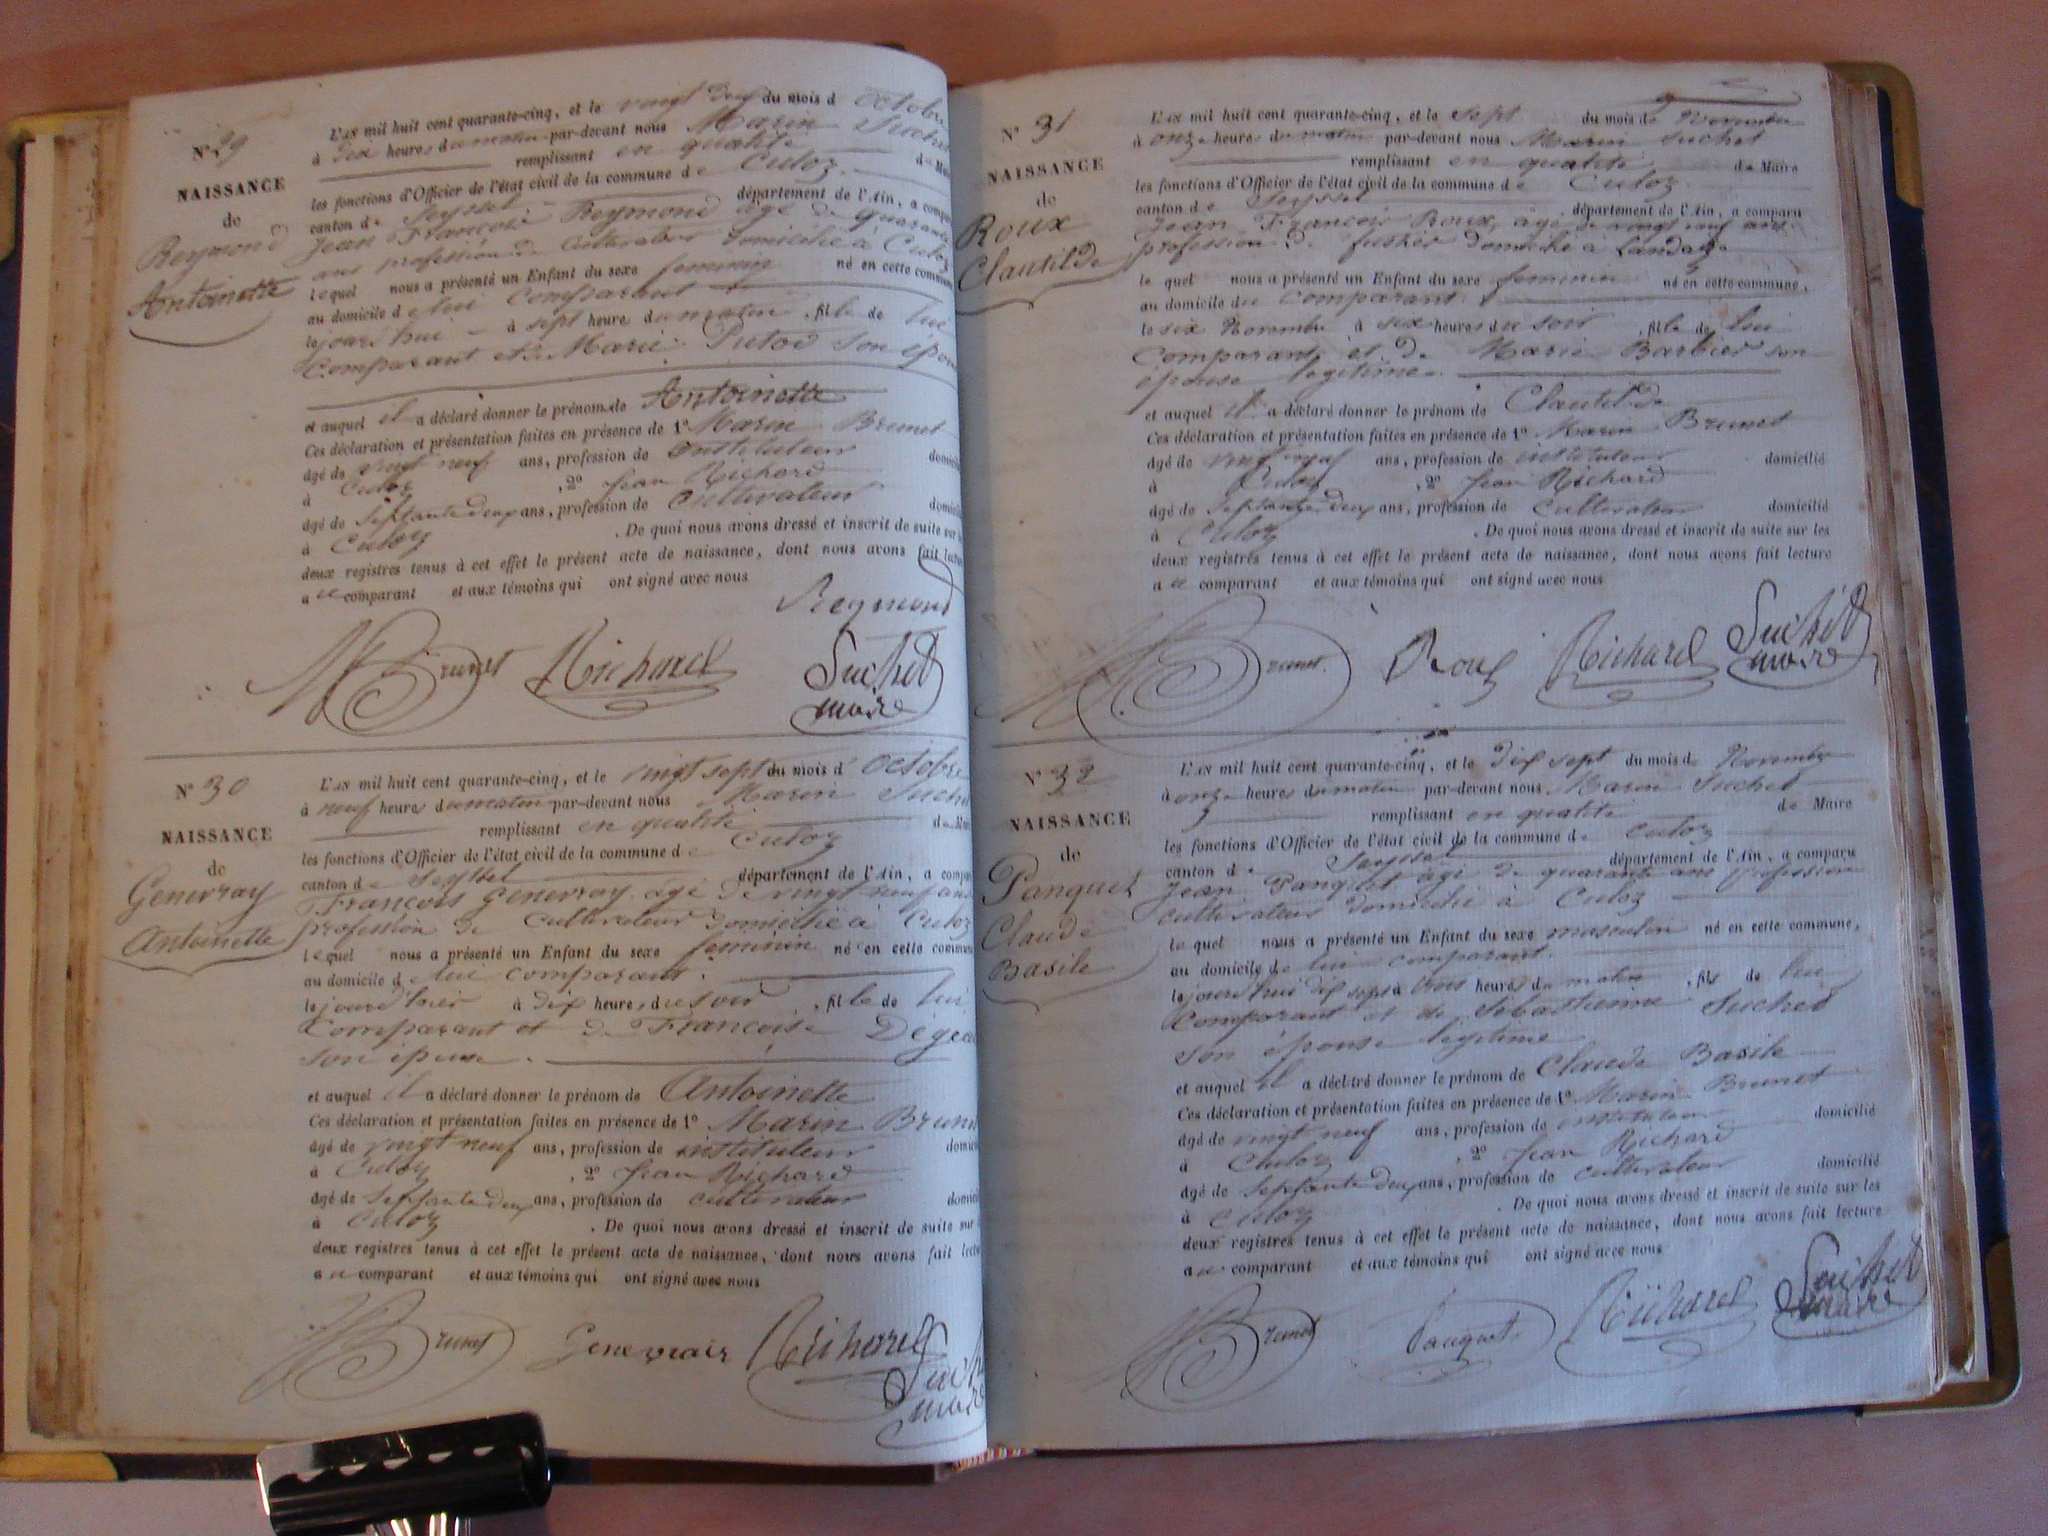 N° 29
NAISSANCE
de
Reymond
Antoinette
L'AN mil huit cent quarante-cinq, et le vingt deux du mois d octobre
à dix heures du matin par-devant nous Marin Suchet
remplissant en qualité de Maire
les fonctions d'Officier de l'état civil de la commune de Culoz
canton de Seyssel département de l'Ain, a comparu
Jean François Reymond âgé de quarante
ans profession de cultivateur domicilié à Culoz
lequel nous a présenté un Enfant du sexe feminin né en cette commune
au domicile de lui comparant
le jourd'hui à sept heure du matin, fille de lui
Comparant et de Marie son épouse
et auquel il a déclaré donner le prénom de Antoinette
Ces déclaration et présentation faites en présence de 1° Marin Brunet
âgé de vingt neuf ans, profession de instituteur domicilié
à Culoz, 2° Jean Richard
âgé de septante deux ans, profession de cultivateur domicilié
à Culoz. De quoi nous avons dressé et inscrit de suite sur les
deux registres tenus à cet effet le présent acte de naissance, dont nous avons fait lecture
a ce comparant et aux témoins qui ont signé avec nous
Reymond
Brunet Richard Suchet
maire
N° 30
NAISSANCE
de
Genevray
Antoinette
L'AN mil huit cent quarante-cinq, et le vingt sept du mois d octobre
à neuf heures du matin par-devant nous Marin Suchet
remplissant en qualité de Maire
les fonctions d'Officier de l'état civil de la commune de Culoz
canton de Seyssel département de l'Ain, a comparu
François Genevray âgé de vingt neuf ans
profession de cultivateur domicilié à Culoz
lequel nous a présenté un Enfant du sexe feminin né en cette commune
au domicile de lui comparant.
le jour d'hier à dix heures du soir, fille de lui
Comparant et de Françoise
son épouse.
et auquel il a déclaré donner le prénom de Antoinette
Ces déclaration et présentation faites en présence de 1° Marin Brunet
âgé de vingt neuf ans, profession de instituteur domicilié
à Culoz, 2° Jean Richard
âgé de septante deux ans, profession de cultivateur domicilié
à Culoz. De quoi nous avons dressé et inscrit de suite sur les
deux registres tenus à cet effet le présent acte de naissance, dont nous avons fait lecture
a ce comparant et aux témoins qui ont signé avec nous
Brunet Genevraix Richard
Suchet
maire
N° 31
NAISSANCE
de
Roux
Clautilde
L'AN mil huit cent quarante-cinq, et le sept du mois de Novembre
à onze heures du matin par-devant nous Marin Suchet
remplissant en qualité de Maire
les fonctions d'Officier de l'état civil de la commune de Culoz
canton de Seyssel département de l'Ain, a comparu
Jean François Roux, âgé de vingt neuf ans
profession de domicilié à Landaize
le quel nous a présenté un Enfant du sexe feminin né en cette commune,
au domicile du comparant.
le six Novembre à six heures du soir, fille de lui
Comparant et de Marie Barbier son
épouse legitime.
et auquel il a déclaré donner le prénom de Clautilde
Ces déclaration et présentation faites en présence de 1° Marin Brunet
âgé de vingt neuf ans, profession de instituteur domicilié
à Culoz, 2° Jean Richard
âgé de septante deux ans, profession de cultivateur domicilié
à Culoz. De quoi nous avons dressé et inscrit de suite sur les
deux registres tenus à cet effet le présent acte de naissance, dont nous avons fait lecture
a ce comparant et aux témoins qui ont signé avec nous
Brunet Roux Richard Suchet
maire
N° 32
NAISSANCE
de
Panquet
Claude
Basile
L'AN mil huit cent quarante-cinq, et le dix sept du mois de Novembre
à onze heures du matin par-devant nous Marin Suchet
remplissant en qualité de Maire
les fonctions d'Officier de l'état civil de la commune de Culoz
canton de Seyssel département de l'Ain, a comparu
Jean Panquet âgé de quarante ans profession
cultivateur domicilié à Culoz
le quel nous a présenté un Enfant du sexe masculin né en cette commune,
au domicile de lui comparant.
le jourd'hui dix sept à trois heures du matin, fils de lui
Comparant et de Sebastienne Suchet
son épouse legitime
et auquel il a déclaré donner le prénom de Claude Basile
Ces déclaration et présentation faites en présence de 1° Marin Brunet
âgé de vingt neuf ans, profession de instituteur domicilié
à Culoz, 2° Jean Richard
âgé de septante deux ans, profession de cultivateur domicilié
à Culoz. De quoi nous avons dressé et inscrit de suite sur les
deux registres tenus à cet effet le présent acte de naissance, dont nous avons fait lecture
a ce comparant et aux témoins qui ont signé avec nous
Brunet Panquet Richard Suchet
maire